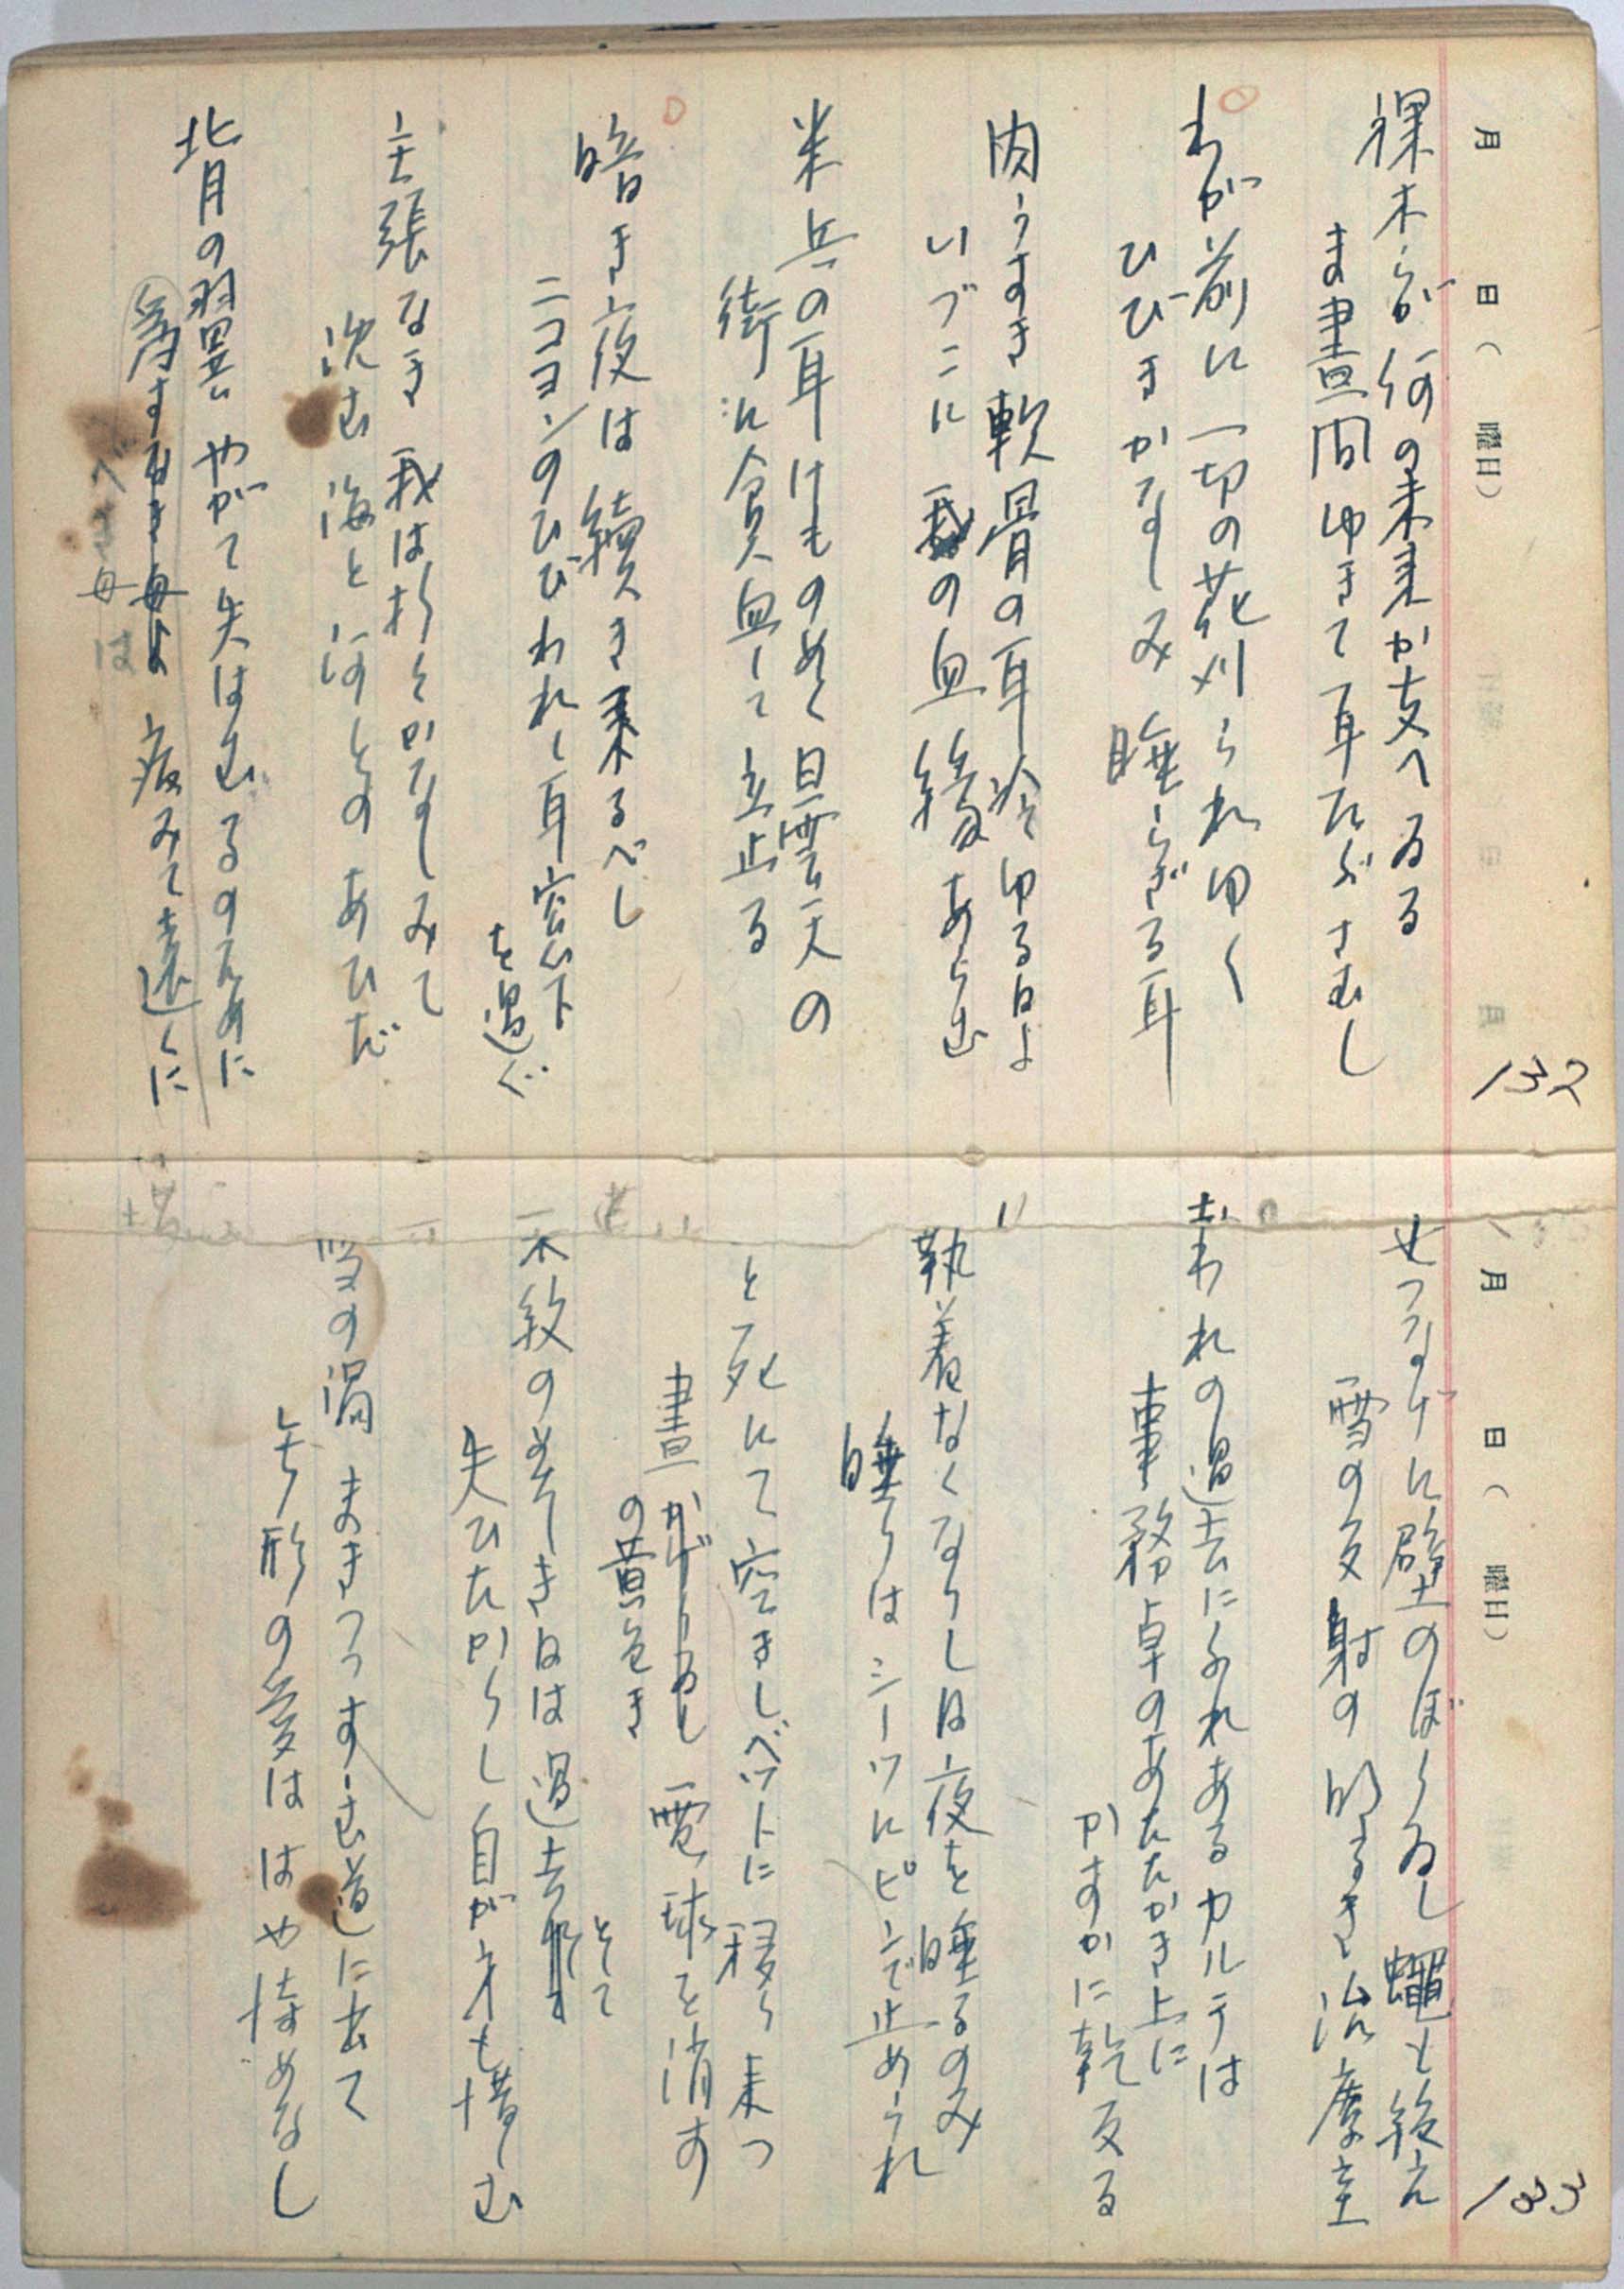 月 日( 曜日)
132
裸木らが何の未来か支へゐる
ま晝間ゆきて耳たぶさむし
わが前に一切の花刈られゆく
ひびきかなしみ睡らざる耳
肉うすき軟骨の耳冷ゆる日よ
いづこに我の血縁あらむ
米兵の耳けものめく曇天の
街に貧血して立止る
暗き夜は續き来るべし
ニコヨンのひびわれし耳窓下
を過ぐ
主張なき我は杉をかなしみて
沈む海と河とのあひだ
背の翼やがて失はむるのために
病みて遠くに
べき母は
月 日( 曜日)
133
せつなげに壁のぼりゐし蠅も絶え
雪の反射の明るき治療室
われの過去にふれあるカルテは
事務卓のあたたかき上に
かすかに乾反る
執着なくなりしは夜を睡るのみ
睡りはシーツにピンで止められ
と死にて空きしベットに移り来つ
晝かげりゐし電球を消す
の黄色き
一本紋の著き日は過去
とて
失ひたからし自が才も惜しむ
雪の渦まきつつすゝむ道に出て
矢形の愛ははや待めなし